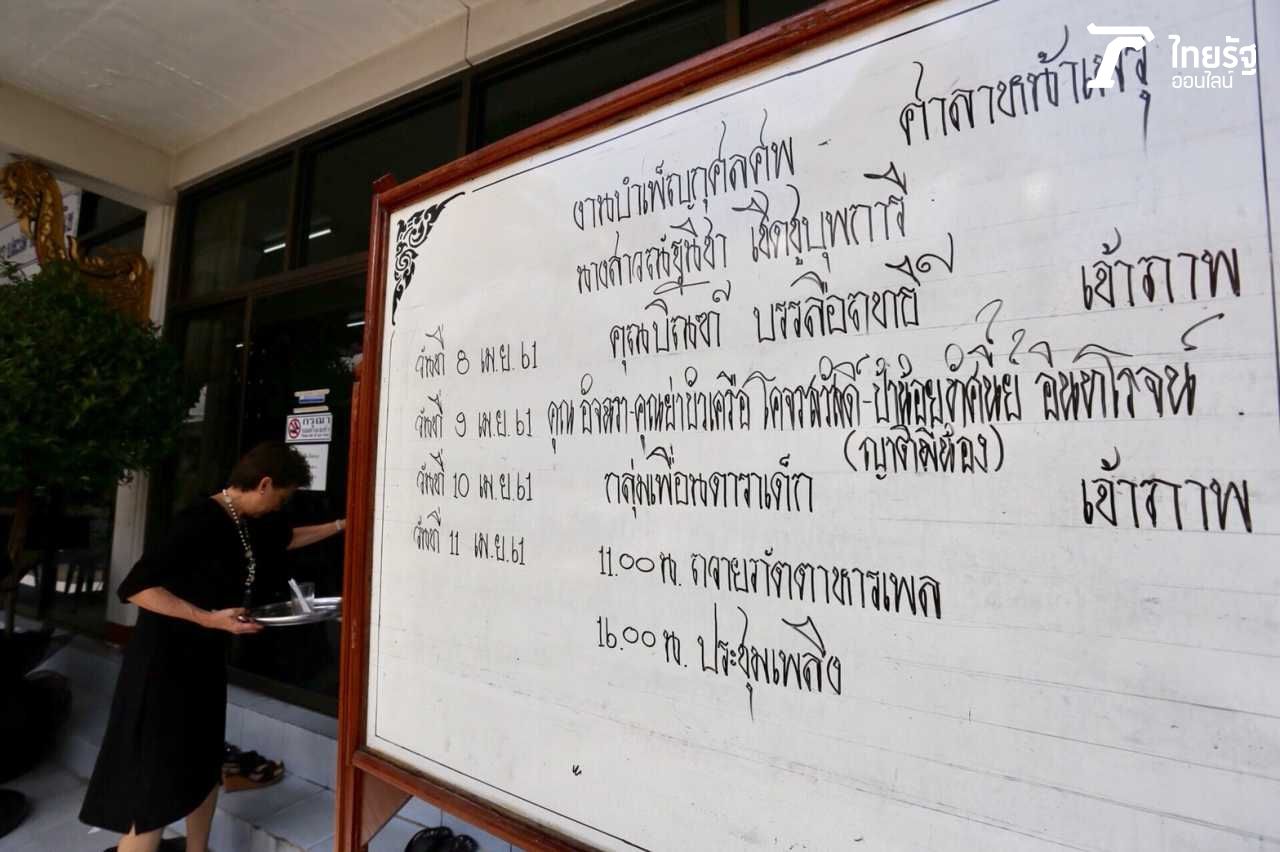 ไทยรัฐ
ออนไลน์
ศาลาหน้าเมรุ
งานบำเพ็ญกุศลศพ
นางสาวณัฐนิชา เชิดชูบุพการี
วันที่ 8 เม.ย.61 คุณบิณฑ์ บรรลือฤทธิ์ เจ้าภาพ
วันที่ 9 เม.ย.61 คุณ อัจฉรา-คุณย่าบัวเครือ โคจรสวัสดิ์-ป้าน้อยทัศนีย์ อินทโรจน์
(ญาติพี่น้อง)
วันที่ 10 เม.ย.61 กลุ่มเพื่อนดาราเด็ก เจ้าภาพ
วันที่ 11 เม.ย.61 11.00 น. ถวายภัตตาหารเพล
16.00 น. ประชุมเพลิง
กรุณา